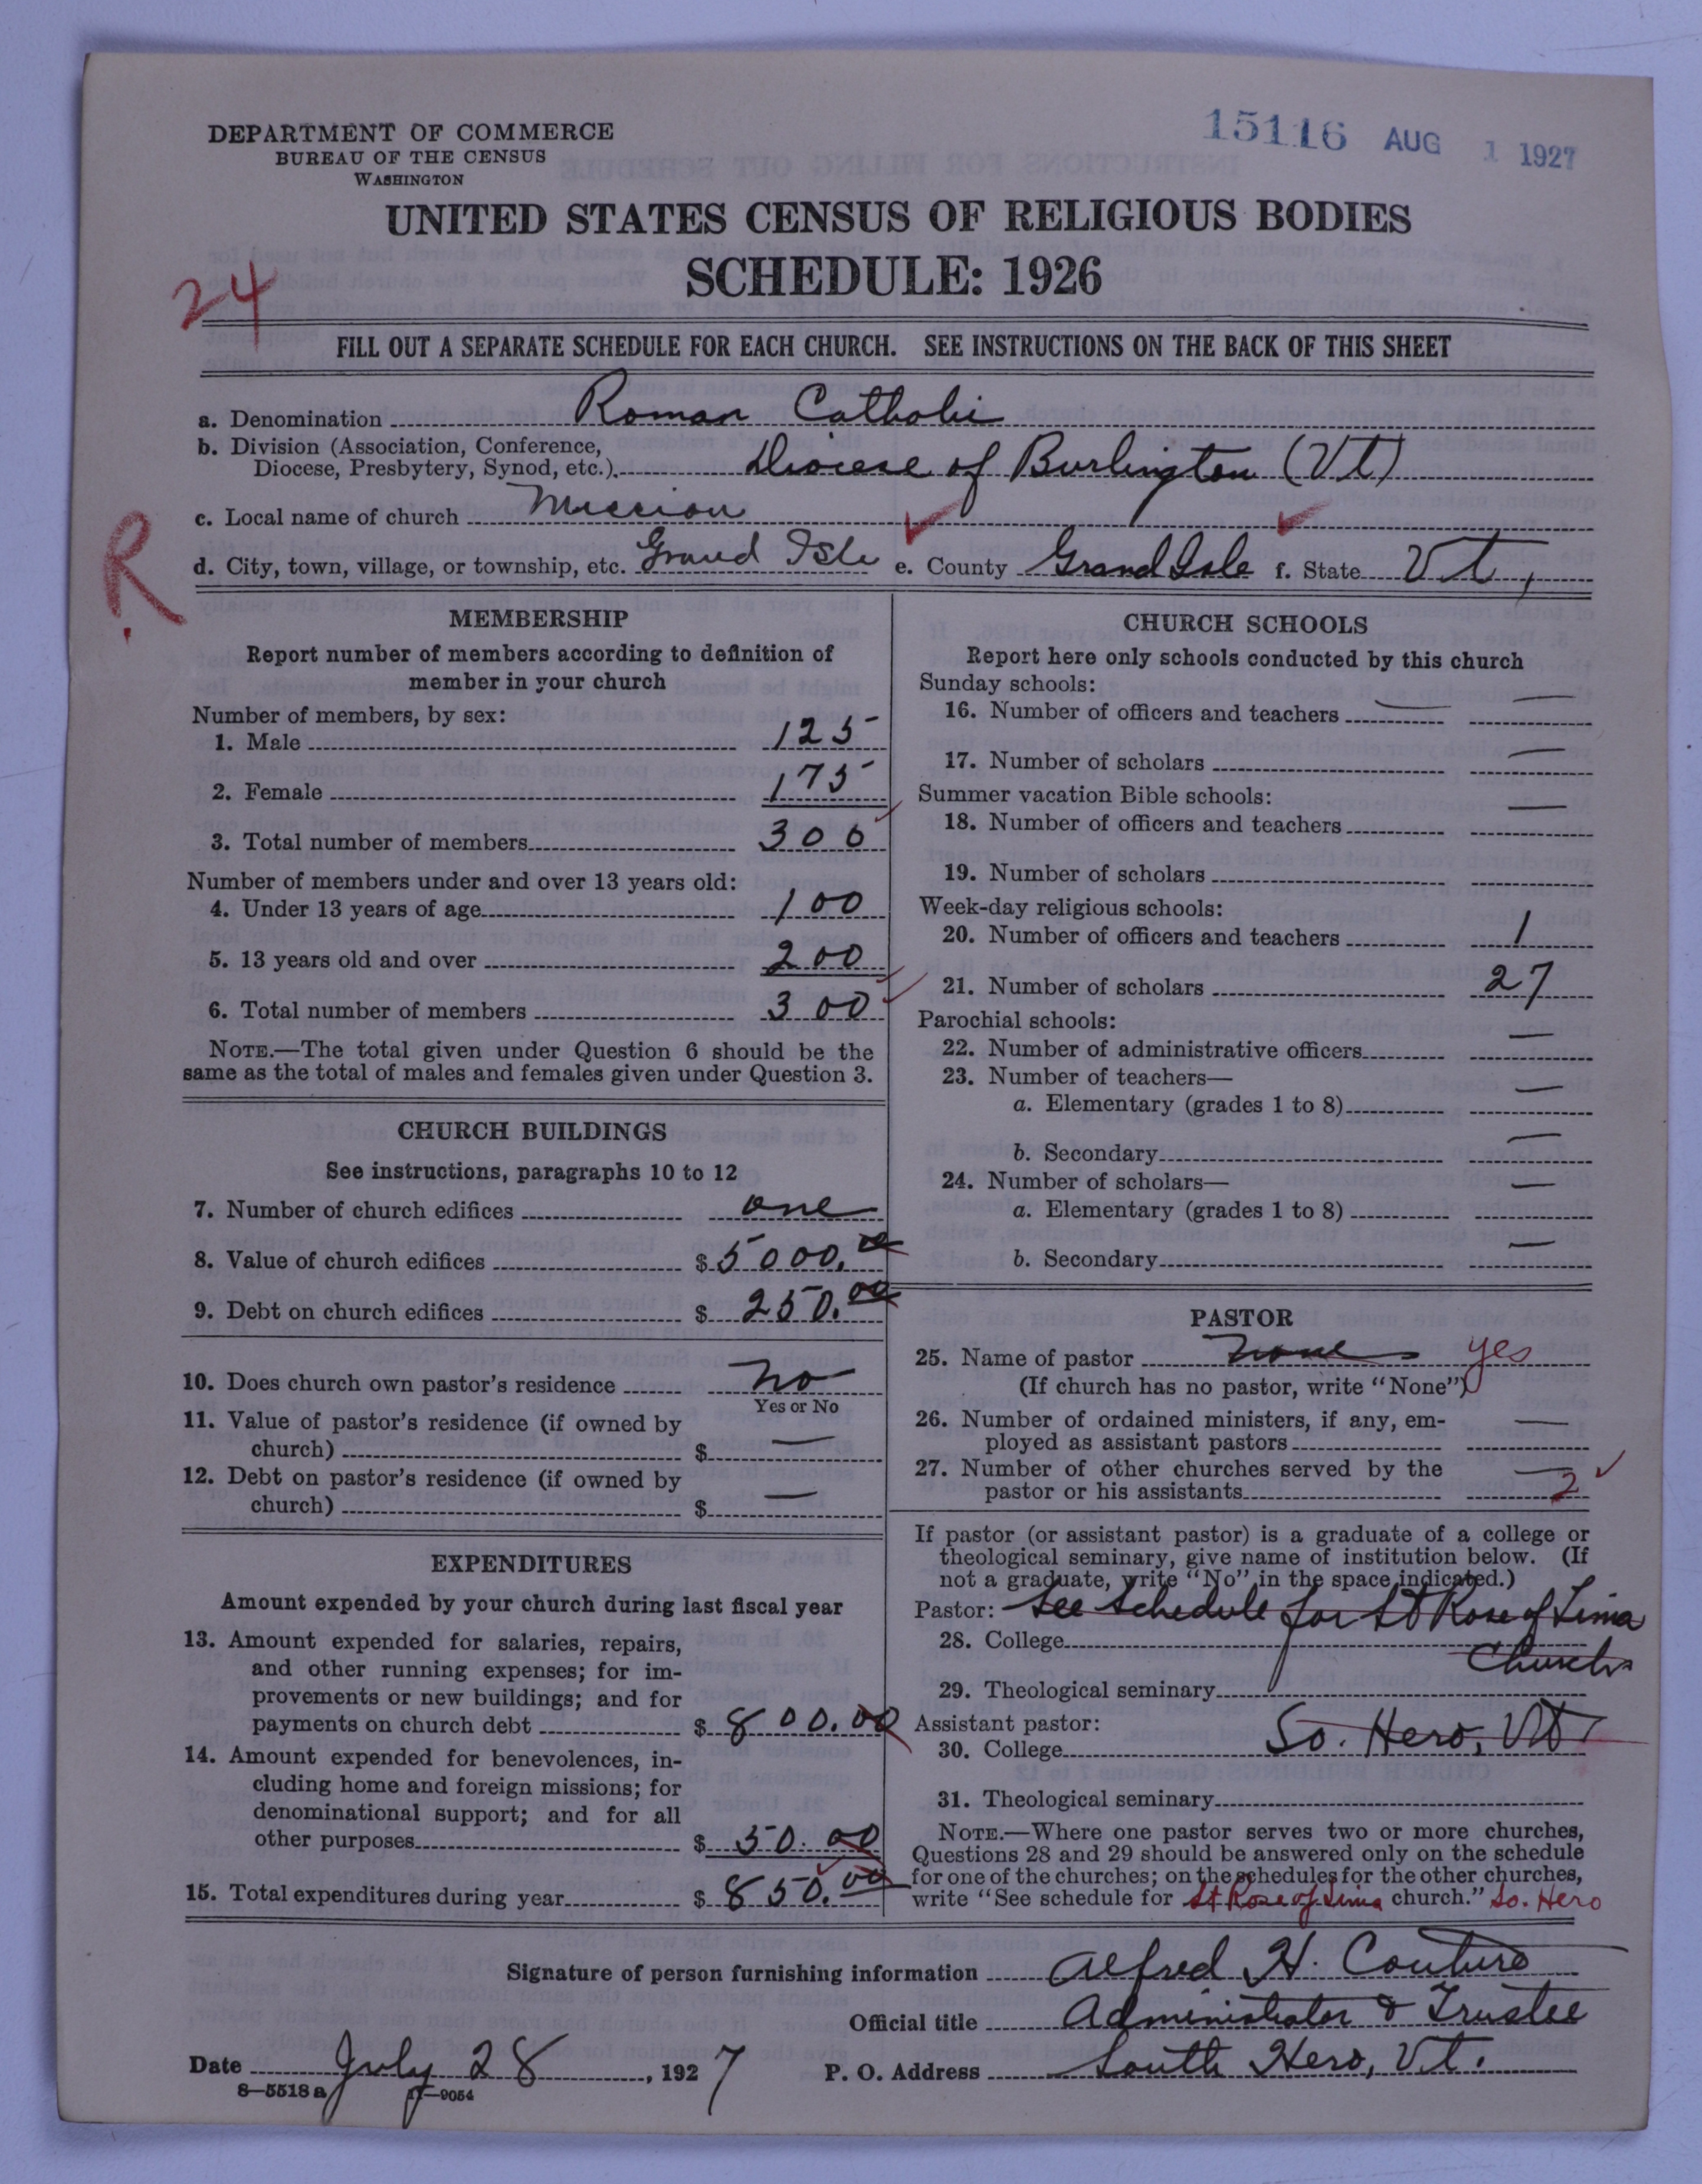 15116 AUG 1 1927
DEPARTMENT OF COMMERCE
BUREAU OF THE CENSUS
WASHINGTON
UNITED STATES CENSUS OF RELIGIOUS BODIES
SCHEDULE: 1926
24
FILL OUT A SEPARATE SCHEDULE FOR EACH CHURCH. SEE INSTRUCTIONS ON THE BACK OF THIS SHEET
a. Denomination Roman Catholic
b. Division (Association, Conference,
Diocese, Presbytery, Synod, etc.) Diocese of Burlington (Vt)
c. Local name of church Mission
R
d. City, town, village, or township, etc. Grand Isle e. County Grand Isle f. State Vt,
MEMBERSHIP
Report number of members according to definition of
member in your church
Number of members, by sex:
1. Male 125
2. Female 175
3. Total number of members 300
Number of members under and over 13 years old:
4. Under 13 years of age 100
5. 13 years old and over 200
6. Total number of members 300
NOTE.—The total given under Question 6 should be the
same as the total of males and females given under Question 3.
CHURCH BUILDINGS
See instructions, paragraphs 10 to 12
7. Number of church edifices one
8. Value of church edifices $ 5000.00
9. Debt on church edifices $ 250.00
10. Does church own pastor's residence No
Yes or No
11. Value of pastor's residence (if owned by
church) $ —
12. Debt on pastor's residence (if owned by
church) $ —
EXPENDITURES
Amount expended by your church during last fiscal year
13. Amount expended for salaries, repairs,
and other running expenses; for im-
provements or new buildings; and for
payments on church debt $ 800.00
14. Amount expended for benevolences, in-
cluding home and foreign missions; for
denominational support; and for all
other purposes $ 50.00
15. Total expenditures during year $ 850.00
CHURCH SCHOOLS
Report here only schools conducted by this church
Sunday schools:
16. Number of officers and teachers —
17. Number of scholars —
Summer vacation Bible schools:
18. Number of officers and teachers —
19. Number of scholars
Week-day religious schools:
20. Number of officers and teachers 1
21. Number of scholars 27
Parochial schools:
22. Number of administrative officers —
23. Number of teachers—
a. Elementary (grades 1 to 8) —
b. Secondary —
24. Number of scholars—
a. Elementary (grades 1 to 8) —
b. Secondary —
PASTOR
25. Name of pastor None yes
(If church has no pastor, write "None")
26. Number of ordained ministers, if any, em-
ployed as assistant pastors —
27. Number of other churches served by the
pastor or his assistants — 2
If pastor (or assistant pastor) is a graduate of a college or
theological seminary, give name of institution below. (If
not a graduate, write "No" in the space indicated.)
Pastor: See Schedule for St Rose of Lima
28. College Church
29. Theological seminary
Assistant pastor: So. Hero, Vt
30. College
31. Theological seminary
NOTE.—Where one pastor serves two or more churches,
Questions 28 and 29 should be answered only on the schedule
for one of the churches; on the schedules for the other churches,
write "See schedule for St Rose of Lima church." So. Hero
Signature of person furnishing information Alfred H. Couture
Official title Administrator & Trustee
Date July 28, 1927 P. O. Address South Hero, Vt.
8—5518a 11—9054